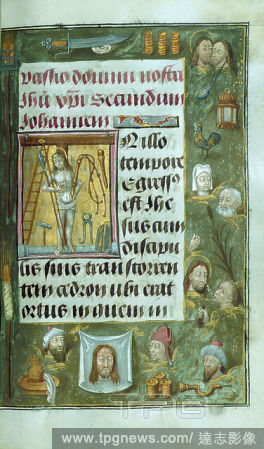 Passio domini nostri
Ihu xpi Secundum
Johannem
In illo
tempore
Egress⁹
est Ihe
sus cum
discipu
lis suis trans torren
tem cedron ubi erat
ortus in quem in
TPG
www.tpgnews.com / 達志影像